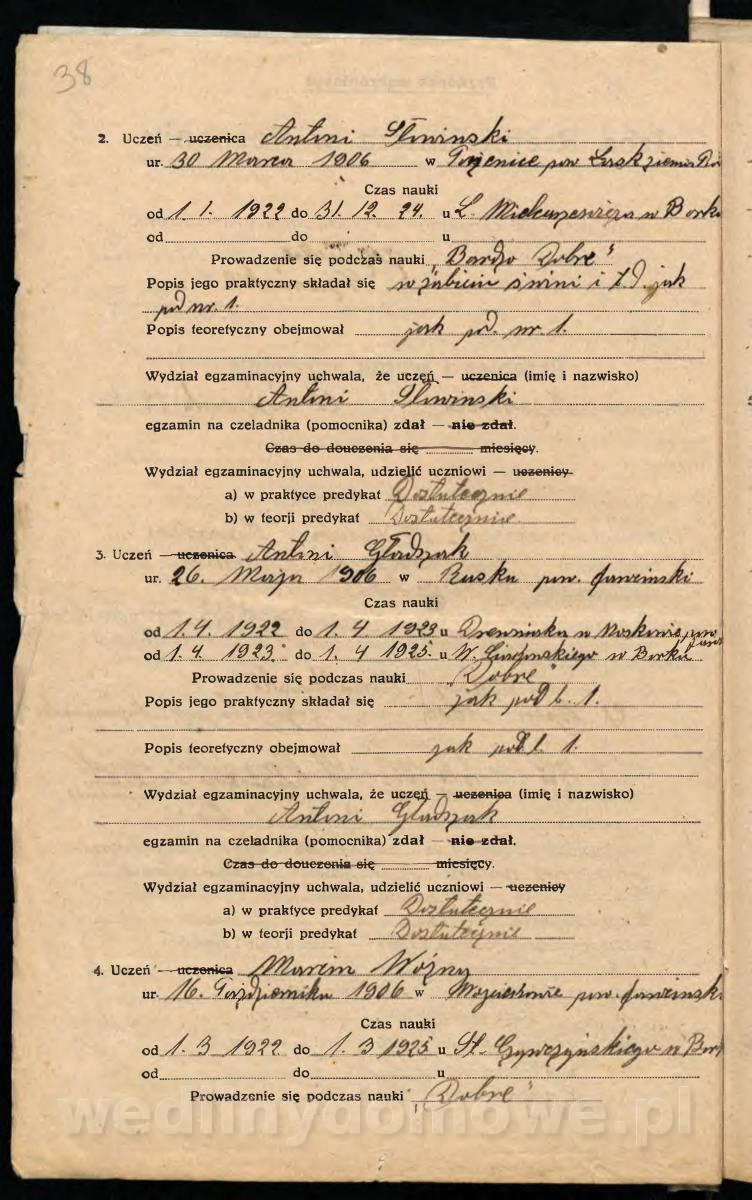 38
2. Uczeń — uczenica Antoni Sliwinski
ur. 30 Marca 1906 w pow
Czas nauki
od 1. 1. 1922 do 31. 12. 24. u L. w Borku
od do u
Prowadzenie się podczas nauki „Bardzo Dobre"
Popis jego praktyczny składał się w zabiciu świni i t. d. jak
pod nr. 1.
Popis teoretyczny obejmował jak pod. nr. 1.
Wydział egzaminacyjny uchwala, że uczeń — uczenica (imię i nazwisko)
Antoni Sliwinski
egzamin na czeladnika (pomocnika) zdał — nie zdał.
Czas do douczenia się miesięcy.
Wydział egzaminacyjny uchwala, udzielić uczniowi — uczenicy
a) w praktyce predykat Dostatecznie
b) w teorji predykat Dostatecznie
3. Uczeń — uczenica Antoni Gładzak
ur. 26. Maja 1906 w Rusku pow. Jarocinski
Czas nauki
od 1. 4. 1922 do 1. 4. 1923 u w pow
od 1. 4. 1923. do 1. 4 1925. u W. w Borku
Prowadzenie się podczas nauki „Dobre"
Popis jego praktyczny składał się jak pod l. 1.
Popis teoretyczny obejmował jak pod l. 1.
Wydział egzaminacyjny uchwala, że uczeń — uczenica (imię i nazwisko)
Antoni Gladzak
egzamin na czeladnika (pomocnika) zdał — nie zdał.
Czas do douczenia się miesięcy.
Wydział egzaminacyjny uchwala, udzielić uczniowi — uczenicy
a) w praktyce predykat Dostatecznie
b) w teorji predykat Dostatecznie
4. Uczeń — uczenica Marcin Woźny
ur. 16. Października 1906 w pow.
Czas nauki
od 1. 3 1922 do 1. 3 1925 u St. w
od do u
Prowadzenie się podczas nauki „Dobre"
wedlinydomowe.pl